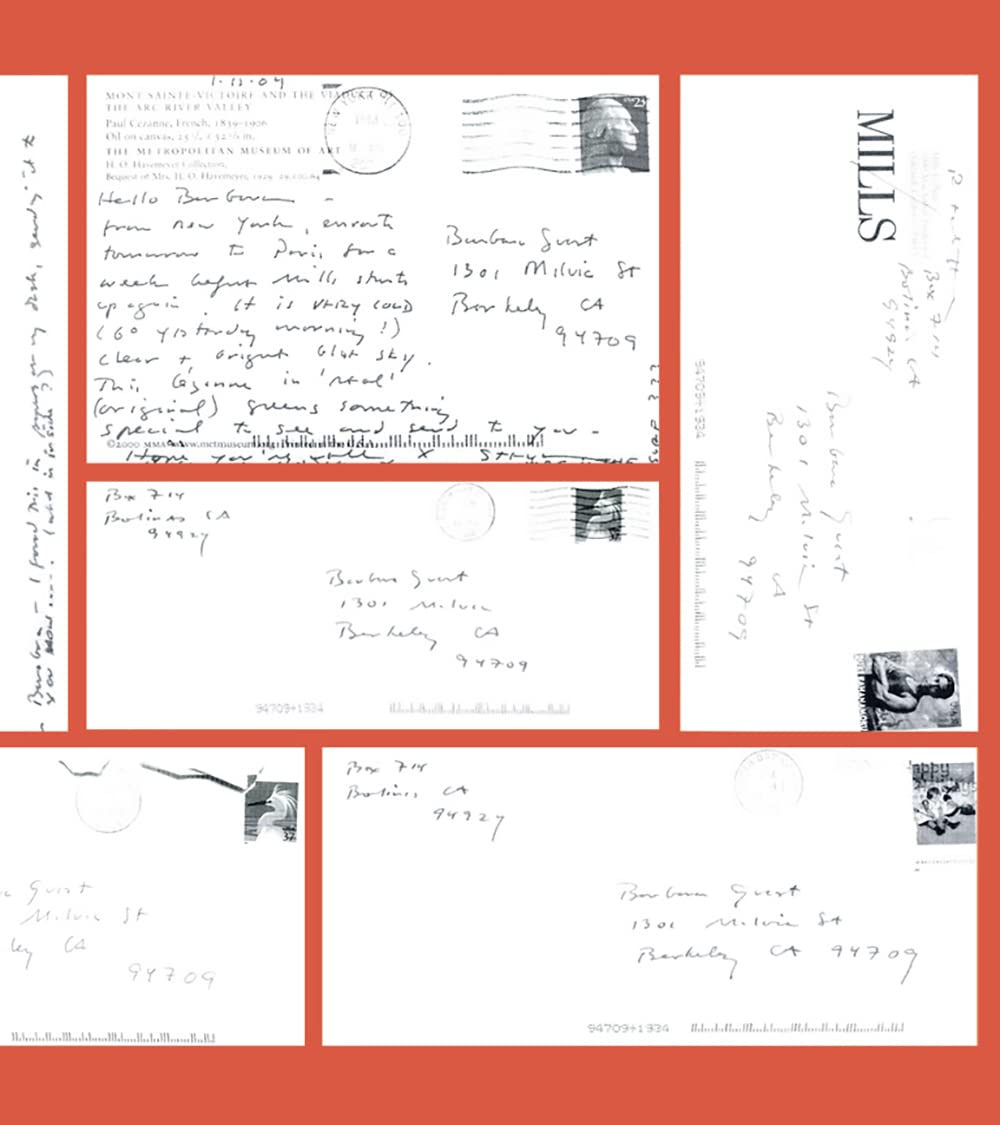 1·11·04
MONT SAINTE-VICTOIRE AND THE VIADUCT OF
THE ARC RIVER VALLEY
Paul Cézanne, French, 1839–1906
Oil on canvas, 25 x 32 in.
THE METROPOLITAN MUSEUM OF ART
H. O. Havemeyer Collection,
Bequest of Mrs. H. O. Havemeyer, 1929 29.100.64
Hello Barbara –
from New York, enroute
tomorrow to Paris for a
week before Mills starts
up again. It is VERY COLD
(6° yesterday morning!)
clear + bright blue sky.
This Cézanne in 'real'
(original) greens something
special to see and send to you –
©2000 MMA www.metmuseum.org Printed in the U.S.A.
Hope you're well X
USA 23
Barbara Guest
1301 Milvia St
Berkeley CA
94709
Barbara – I found this in my desk, send it to
you now ....
MILLS
Box 714
Bolinas CA
94924
Barbara Guest
1301 Milvia St
Berkeley CA
94709
94709+1934
Box 714
Bolinas CA
94924
37
Barbara Guest
1301 Milvia
Berkeley CA
94709
94709+1934
37
Guest
Milvia St
ley CA
94709
Box 714
Bolinas CA
94924
Barbara Guest
1301 Milvia St
Berkeley CA 94709
94709+1934